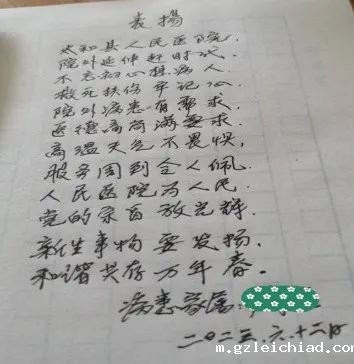 表揚
太和县人民医院,
院外延伸赶时代.
不忘初心想病人.
救死扶伤牢记心
院外病患有帮求.
医德高尚满要求.
高温天气不畏惧,
服务周到令人佩.
人民医院为人民.
党的宗旨放光辉.
新生事物要发扬.
和谐共存万年春.
病患家属:
二〇二三.六.十二日
m.gzleichiad.cn